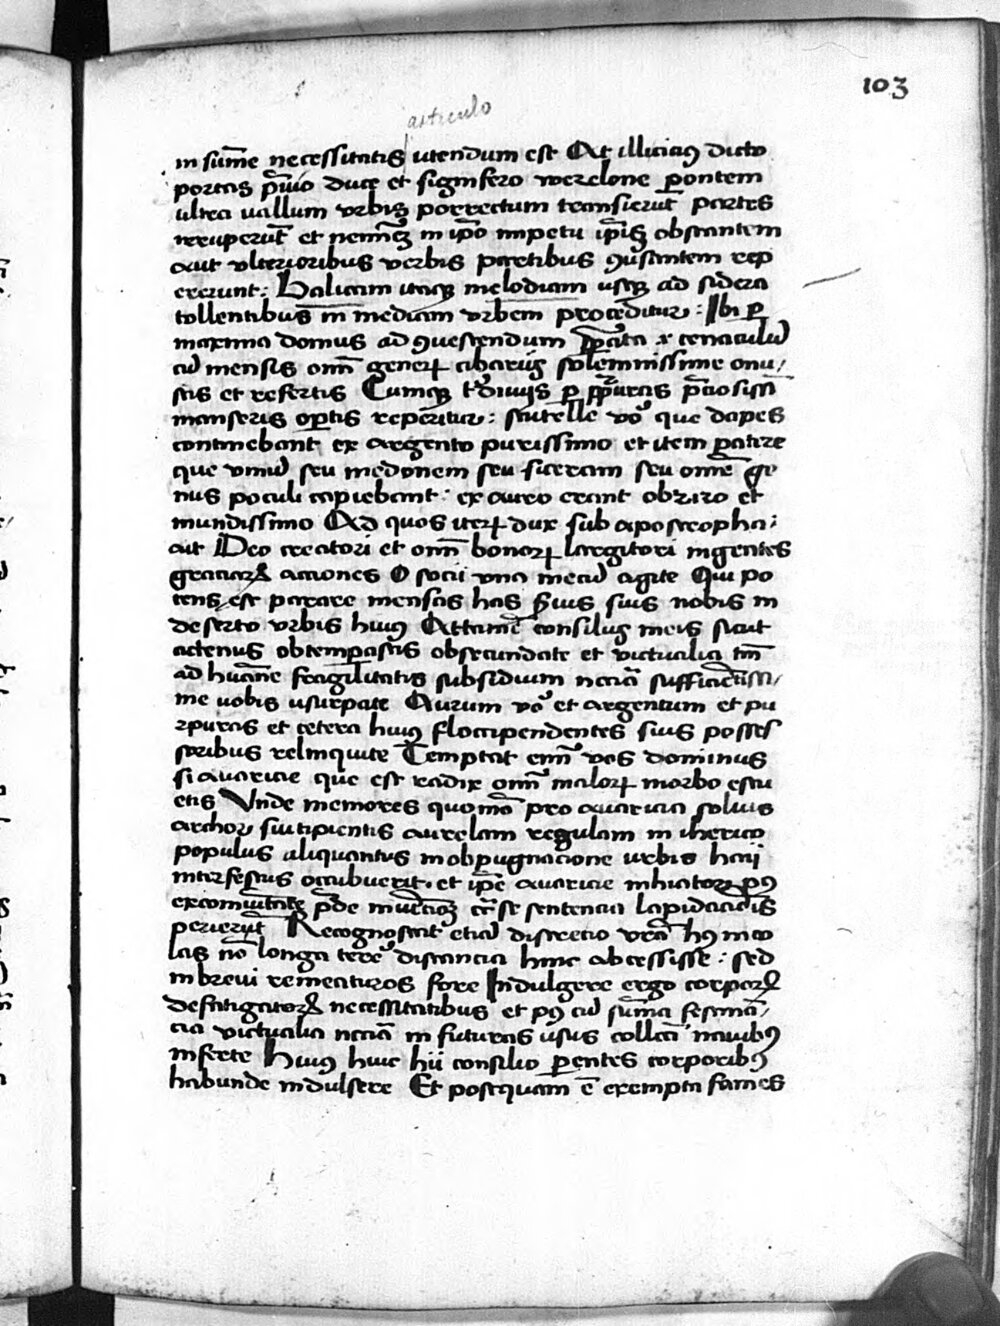 103
articulo
in summe necessitatis utendum est At illicius dicto
portas pervio duce et signifero werelone pontem
ultra vallum urbis porrectum transierunt partes
et neminem in ipso impetu ipsis obstantem
aut ulterioribus verbis partibus consistentem rep
ererunt: Halicam itaque melodiam usque ad sidera
tollentibus in mediam urbem proceditur: Ibi per
maxima domus ad convescendum preparata et cenaculum
cum mensis omni generum cibariis solemnissime onu
stis et refertis Cumque tridiviis per purpuras preciosissimis
opertis reperitur: scutelle vero que dapes
continebant ex argento purissimo et item patere
que vinum seu medonem seu siceram seu omne ge
nus poculi capiebant: ex auro erant obrizo et
mundissimo Ad quos iterum dux sub apostropha:
ait Deo creatori et omnium bonorum largitori ingentes
graciarum acciones O socii una mecum agite Qui po
tens est parare mensas has servis suis nobis in
deserto urbis huius Attamen consiliis meis sicut
actenus obtemperastis obsecundate et victualia tantum
ad humane fragilitatis subsidium necessaria sufficientissi
me vobis usurpate Aurum vero et argentum et pu
rpuras et cetera huius floccipendentes suis posses
soribus relinquite Temptat enim vos dominus
si avaricie que est radix omnium malorum morbo
etis Unde memores quomodo pro avaricia solius
archor surripientis auream regulam in iherico
populus aliquantus in obpugnacione urbis haii
interfectus occubuerit. et ipse avaricie inhiator post
excommunicate prede invencionem sentencia lapidacionis
perierit Recognoscat etiam discrecio vestra hos inco
las non longa terre distancia hinc abcessisse: sed
in brevi remeaturos fore Indulgere ergo corporum
defatigatorum necessitatibus et post cum summa festinan
cia victualia necessaria in futuros usus collecta navibus
inferte Huius huic hii consilio parentes corporibus
habunde indulsere Et postquam est exempta fames